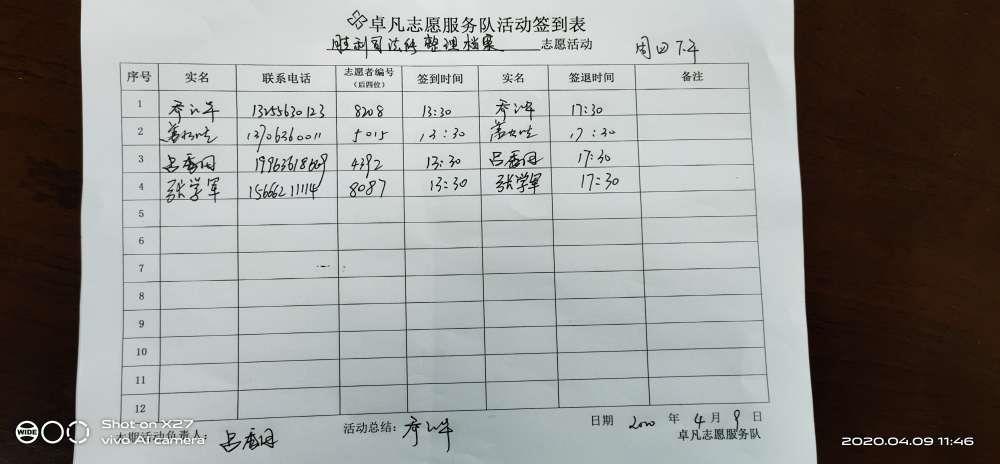 卓凡志愿服务队活动签到表
胜利司法所整理档案 志愿活动 周四下午
序号 实名 联系电话 志愿者编号（后四位） 签到时间 实名 签退时间 备注
1 13255630123 8208 13:30 17:30
2 13706360011 5015 13:30 17:30
3 吕香网 4392 13:30 吕香网 17:30
4 张学军 15666211114 8087 13:30 张学军 17:30
5
6
7
8
9
10
11
12
本期活动负责人： 活动总结：
日期 年 4 月 9 日
卓凡志愿服务队
WIDE
Shot on X27
vivo AI camera
2020.04.09 11:46